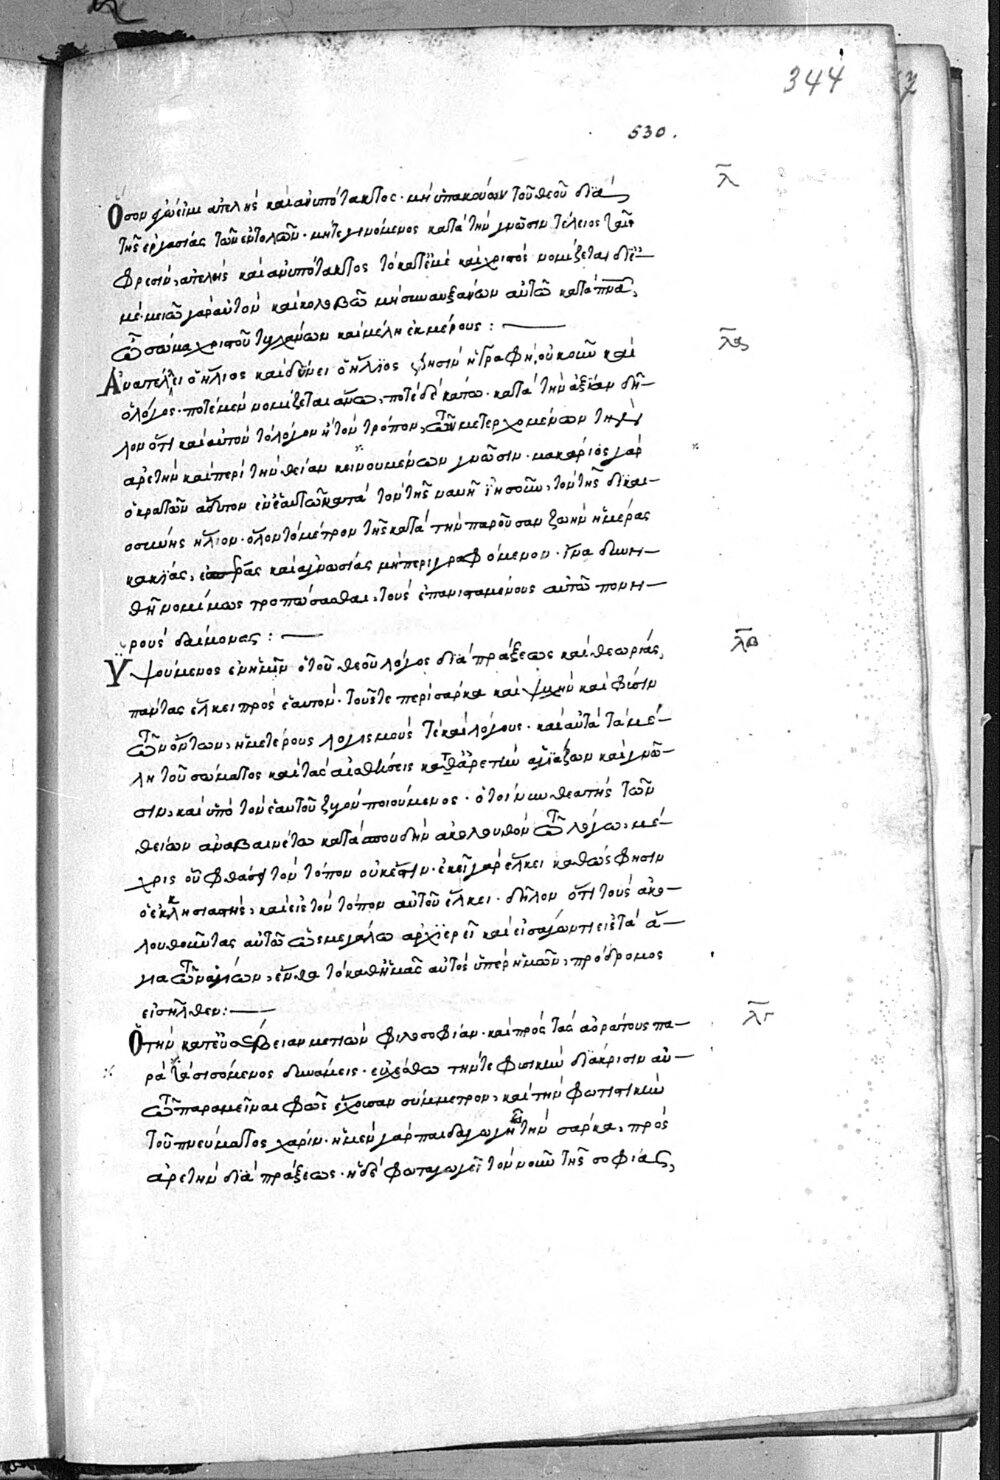 344
530.
λ
Ὅσον ἐγώ εἰμι ἀτελὴς καὶ ἀνυπότακτος· μὴ ὑπακούων τοῦ θεοῦ διὰ
τῆς ἐργασίας τῶν ἐντολῶν· μήτε γινόμενος κατὰ τὴν γνῶσιν τέλειος ταῖς
φρεσὶν, ἀτελὴς καὶ ἀνυπότακτος τὸ κατ' ἐμὲ καὶ χριστὸς νομίζεται δι' ἐ-
μέ· μειῶ γὰρ αὐτὸν καὶ κολοβῶ μὴ συναυξάνων αὐτῶ κατὰ πνα,
ὡς σῶμα χριστοῦ τυγχάνων καὶ μέλη ἐκ μέρους:
λα
Ἀνατέλλει ὁ ἥλιος καὶ δύνει ὁ ἥλιος φησὶν ἡ γραφή, οὐκοῦν καὶ
ὁ λόγος· ποτὲ μὲν νομίζεται ἄνω, ποτὲ δὲ κάτω· κατὰ τὴν ἀξίαν δη-
λον ὅτι καὶ αὐτὸν τὸ λόγον ἢ τὸν τρόπον, τῶν μετερχομένων τὴν
ἀρετὴν καὶ περὶ τὴν θείαν κεινουμένων γνῶσιν· μακάριος γὰρ
ὁ κρατῶν ἄδυτον ἐν ἑαυτῶ κατὰ τὸν τῆς ναυῆ ἰησοῦν, τὸν τῆς δικαι-
οσύνης ἥλιον· ὅλον τὸ μέτρον τῆς κατὰ τὴν παροῦσαν ζωὴν ἡμέρας
κακίας, καὶ ἀγνωσίας μὴ περιγραφόμενον· ἵνα δυνη-
θῆ νομίμως τροπώσασθαι, τοὺς ἐπανισταμένους αὐτῶ πονη-
ροὺς δαίμονας:
λβ
Ὑψούμενος ἐν ἡμῖν ὁ τοῦ θεοῦ λόγος διὰ πράξεως καὶ θεωρίας,
πάντας ἕλκει πρὸς ἑαυτόν· τούς τε περὶ σαρκα καὶ ψυχὴν καὶ φύσιν
τῶν ὄντων, ἡμετέρους λογισμούς τὲ καὶ λόγους· καὶ αὐτὰ τὰ μέ-
λη τοῦ σώματος καὶ τὰς αἰσθήσεις κατ' ἀρετὴν ἁγιάζων καὶ γνῶ-
σιν, καὶ ὑπὸ τὸν ἑαυτοῦ ζυγὸν ποιούμενος· ὁ τοίνυν θεατὴς τῶν
θείων ἀναβαινέτω κατὰ σπουδὴν ἀκολουθὸν τῶ λόγω, μέ-
χρις οὗ φθάσῃ τὸν τόπον οὗ κἔστιν· ἐκεῖ γὰρ ἕλκει καθώς φησιν
ὁ ἐκκλησιαστής, καὶ εἰς τὸν τόπον αὐτοῦ ἕλκει· δῆλον ὅτι τοὺς ἀκο-
λουθοῦντας αὐτῶ ὡς μεγάλω ἀρχιερεῖ καὶ εἰσαγωντι εἰς τὰ ἅ-
για τῶν ἁγίων, ἔνθα τὸ καθ' ἡμᾶς αὐτὸς ὑπὲρ ἡμῶν, πρόδρομος
εἰσῆλθεν:
λγ
Ὁ τὴν κατ' εὐσέβειαν μετιὼν φιλοσοφίαν· καὶ πρὸς τὰς ἀοράτους πα-
ρατασσόμενος δυνάμεις· εὐχέσθω τήν τε φυσικὴν διάκρισιν αὐ-
τῶ παραμεῖναι φῶς ἔχουσαν σύμμετρον, καὶ τὴν φωτιστικὴν
τοῦ πνεύματος χάριν· ἡ μὲν γὰρ παιδαγωγεῖ τὴν σάρκα, πρὸς
ἀρετὴν διὰ πράξεως· ἡ δὲ φωταγωγεῖ τὸν νοῦν τῆς σοφίας,